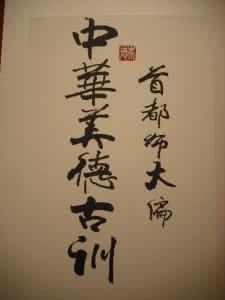 首都师大编
中華美德古训